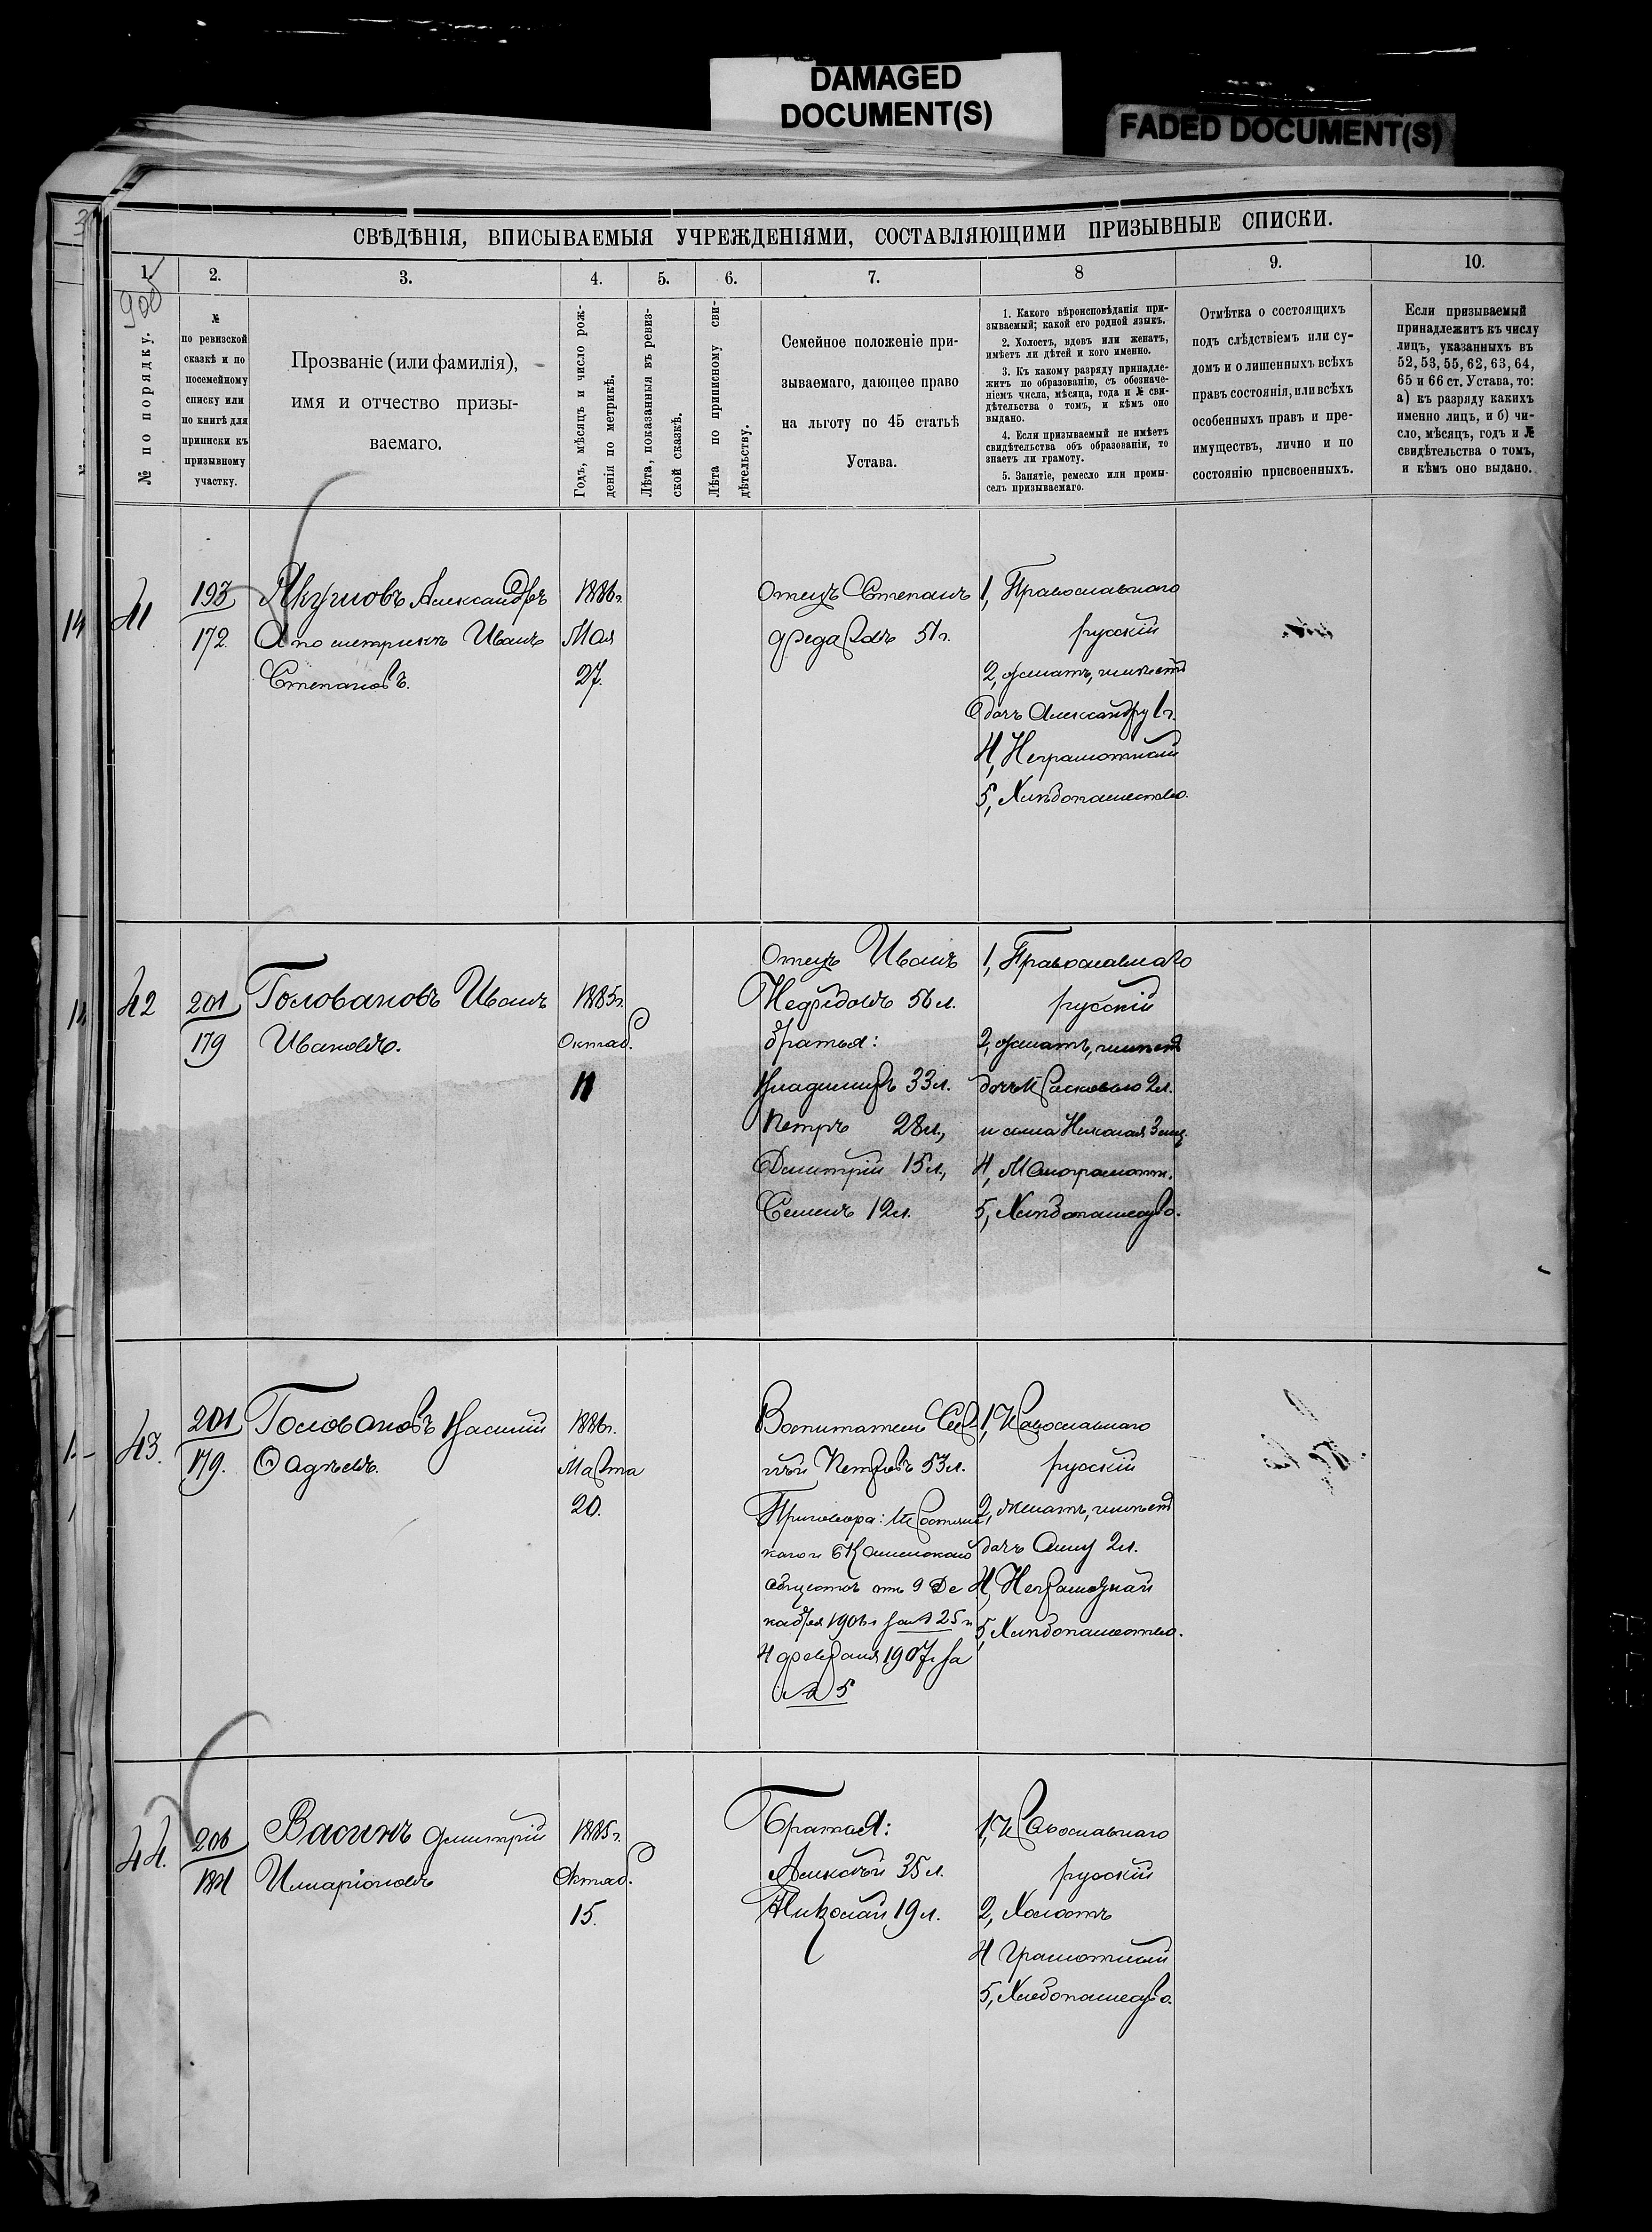 DAMAGED
DOCUMENT(S)
FADED DOCUMENT(S)
СВѢДѢНІЯ, ВПИСЫВАЕМЫЯ УЧРЕЖДЕНІЯМИ, СОСТАВЛЯЮЩИМИ ПРИЗЫВНЫЕ СПИСКИ.
1. 2. 3. 4. 5. 6. 7. 8 9. 10.
№ по порядку.
№
по ревизской
сказкѣ и по
посемейному
списку или
по книгѣ для
приписки къ
призывному
участку.
Прозваніе (или фамилія),
имя и отчество призы-
ваемаго.
Годъ, мѣсяцъ и число рож-
денія по метрикѣ.
Лѣта, показанныя въ ревиз-
ской сказкѣ.
Лѣта по приписному сви-
дѣтельству.
Семейное положеніе при-
зываемаго, дающее право
на льготу по 45 статьѣ
Устава.
1. Какого вѣроисповѣданія при-
зываемый; какой его родной языкъ.
2. Холостъ, вдовъ или женатъ,
имѣетъ ли дѣтей и кого именно.
3. Къ какому разряду принадле-
житъ по образованію, съ обозначе-
ніемъ числа, мѣсяца, года и № сви-
дѣтельства о томъ, и кѣмъ оно
выдано.
4. Если призываемый не имѣетъ
свидѣтельства объ образованіи, то
знаетъ ли грамоту.
5. Занятіе, ремесло или промы-
селъ призываемаго.
Отмѣтка о состоящихъ
подъ слѣдствіемъ или су-
домъ и о лишенныхъ всѣхъ
правъ состоянія, или всѣхъ
особенныхъ правъ и пре-
имуществъ, лично и по
состоянію присвоенныхъ.
Если призываемый
принадлежитъ къ числу
лицъ, указанныхъ въ
52, 53, 55, 62, 63, 64,
65 и 66 ст. Устава, то:
а) къ разряду какихъ
именно лицъ, и б) чи-
сло, мѣсяцъ, годъ и №
свидѣтельства о томъ,
и кѣмъ оно выдано.
41
193
172.
Якуновъ Александръ
А по метрикѣ Иванъ
Степановъ.
1886г.
Мая
27.
Отецъ Степанъ
51г.
1, Православнаго
русскій
2, женатъ, имѣетъ
дочь Александру 1г.
4, Неграмотный
5, Хлѣбопашество.
42
201
179
Головановъ Иванъ
Ивановъ.
1885г.
Октяб.
11
Отецъ Иванъ
56 л.
братья:
Владимиръ 33л.
Петръ 28л.,
Дмитрій 15л.,
Семенъ 12л.
1, Православнаго
русскій
2, женатъ, имѣетъ
дочь Прасковью 2л.
и сына Николая 3 мѣс.
4, Малограмотн.
5, Хлѣбопашество.
43.
201
179.
Головановъ Василій
Фадѣевъ.
1886г.
Марта
20.
Воспитатель
Петровъ 53л.
Приговора:
отъ 9 Де
кабря 1906г за № 25 и
4 февраля 1907г за
№ 5
1, Православнаго
русскій
2, женатъ, имѣетъ
дочь Анну 2л.
4, Неграмотный
5, Хлѣбопашество.
44.
206
184
Васинъ Дмитрій
Иларіоновъ
1885г.
Октяб.
15.
Братья:
Алексѣй 35л.
Николай 19л.
1, Православнаго
русскій
2, Холостъ
4 Грамотный
5, Хлѣбопашество.